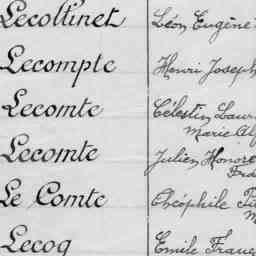 Lecollinet Léon Eugène
Lecompte Henri Joseph
Lecomte Célestin
Marie
Lecomte Julien Honoré
Le Comte Théophile
Lecoq Emile